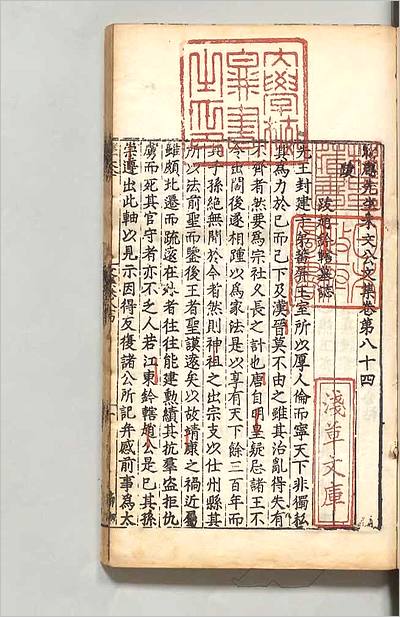 晦庵先生朱文公文集卷第八十四
跋
跋趙鈐轄墓誌
先王封建子弟蕃屏王室所以厚人倫而寧天下非獨私
其爲力於已而已下及漢晉莫不由之雖其治亂得失有
不齊者然要爲宗社久長之計也唐自明皇疑忌諸王不
令出閤後遂相踵以爲家法是以享有天下餘三百年而
其子孫絶無聞於今者然則神祖之出宗支以仕州縣其
所以法前聖而鑒後王者聖謨遠矣以故靖康之禍近屬
雖頗北遷而疏遠在外者往往能建勲績其抗羣盗拒仇
虜而死其官守者亦不乏人若江東鈐轄趙公是已其孫
崇遵出此軸以見示因得反復諸公所記并感前事爲太
大學校圖書之印
淺草文庫